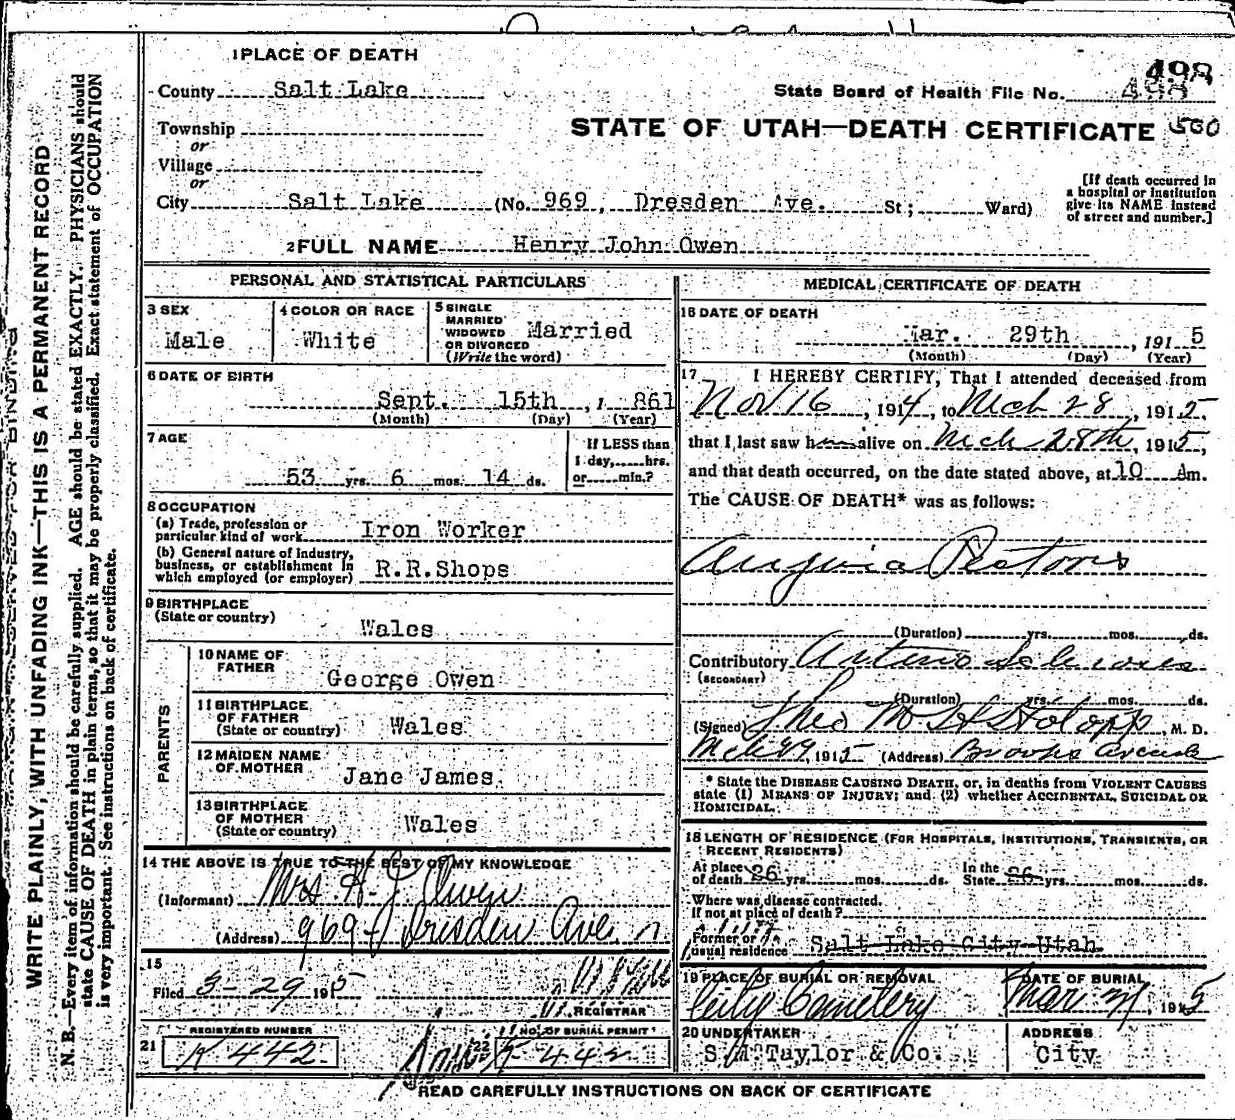 1 PLACE OF DEATH
County Salt Lake
State Board of Health File No. 498
498
Township
or
Village
or
City Salt Lake (No. 969, Dresden Ave. St; Ward)
STATE OF UTAH—DEATH CERTIFICATE 500
[If death occurred in
a hospital or institution
give its NAME instead
of street and number.]
2 FULL NAME Henry John Owen
PERSONAL AND STATISTICAL PARTICULARS
3 SEX
Male
4 COLOR OR RACE
White
5 SINGLE
MARRIED
WIDOWED
OR DIVORCED
(Write the word)
Married
6 DATE OF BIRTH
Sept. 15th, 1861
(Month) (Day) (Year)
7 AGE
53 yrs. 6 mos. 14 ds.
If LESS than
1 day, hrs.
or min.?
8 OCCUPATION
(a) Trade, profession or
particular kind of work Iron Worker
(b) General nature of Industry,
business, or establishment in
which employed (or employer) R.R.Shops
9 BIRTHPLACE
(State or country) Wales
PARENTS
10 NAME OF
FATHER George Owen
11 BIRTHPLACE
OF FATHER
(State or country) Wales
12 MAIDEN NAME
OF MOTHER Jane James
13 BIRTHPLACE
OF MOTHER
(State or country) Wales
14 THE ABOVE IS TRUE TO THE BEST OF MY KNOWLEDGE
(Informant) Mrs H. J. Owen
(Address) 969 Dresden Ave
15
Filed 3-29 1915
REGISTRAR
21 REGISTERED NUMBER
K 442
22 NO. OF BURIAL PERMIT
K 442
MEDICAL CERTIFICATE OF DEATH
16 DATE OF DEATH
Mar. 29th, 1915
(Month) (Day) (Year)
17 I HEREBY CERTIFY, That I attended deceased from
Nov 16, 1914, to Mch 28, 1915,
that I last saw h alive on Mch 28th, 1915,
and that death occurred, on the date stated above, at 10 Am.
The CAUSE OF DEATH* was as follows:
Angina Pectoris
(Duration) yrs. mos. ds.
Contributory Arterio Sclerosis
(SECONDARY)
(Duration) yrs. mos. ds.
(Signed) Theo M. Stolopp, M. D.
Mch 29, 1915 (Address) Brooks Arcade
* State the DISEASE CAUSING DEATH, or, in deaths from VIOLENT CAUSES
state (1) MEANS OF INJURY; and (2) whether ACCIDENTAL, SUICIDAL OR
HOMICIDAL.
18 LENGTH OF RESIDENCE (FOR HOSPITALS, INSTITUTIONS, TRANSIENTS, OR
RECENT RESIDENTS)
At place
of death 26 yrs. mos. ds.
In the
State 26 yrs. mos. ds.
Where was disease contracted.
If not at place of death?
Former or
usual residence Salt Lake City Utah
19 PLACE OF BURIAL OR REMOVAL
City Cemetery
DATE OF BURIAL
Mar 31, 1915
20 UNDERTAKER
S.M.Taylor & Co.
ADDRESS
City
READ CAREFULLY INSTRUCTIONS ON BACK OF CERTIFICATE
WRITE PLAINLY, WITH UNFADING INK—THIS IS A PERMANENT RECORD
N. B.—Every item of information should be carefully supplied. AGE should be stated EXACTLY. PHYSICIANS should
state CAUSE OF DEATH in plain terms, so that it may be properly classified. Exact statement of OCCUPATION
is very important. See instructions on back of certificate.